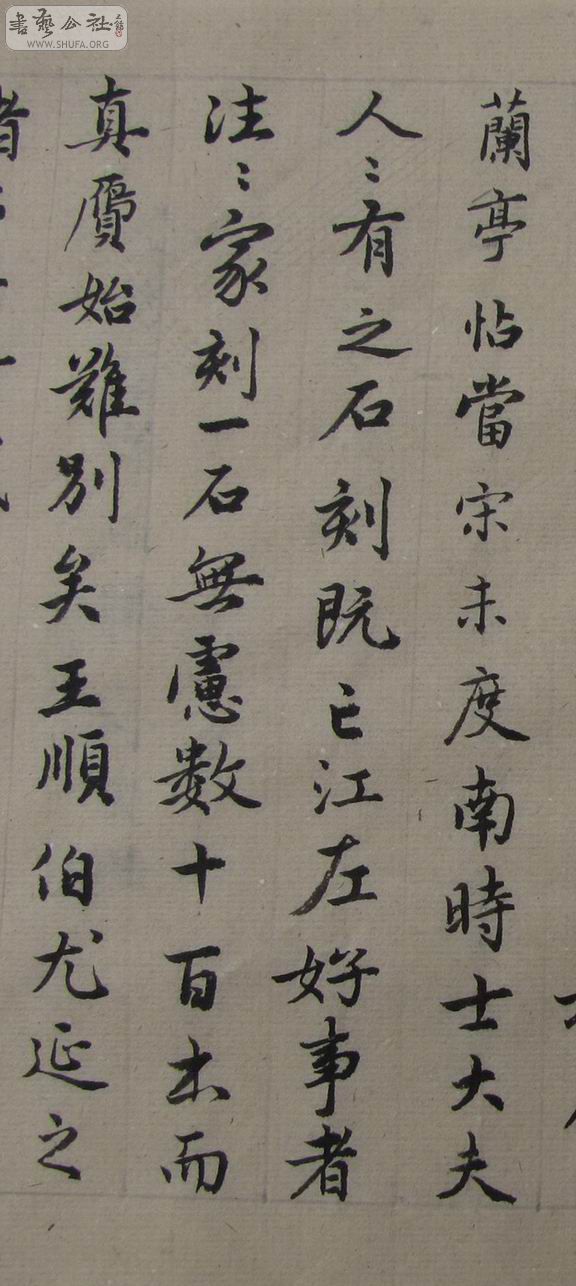 書藝公社
WWW.SHUFA.ORG
蘭亭帖當宋未度南時士大夫
人〻有之石刻既亡江左好事者
往〻家刻一石無慮數十百本而
真贋始難別矣王順伯尤延之